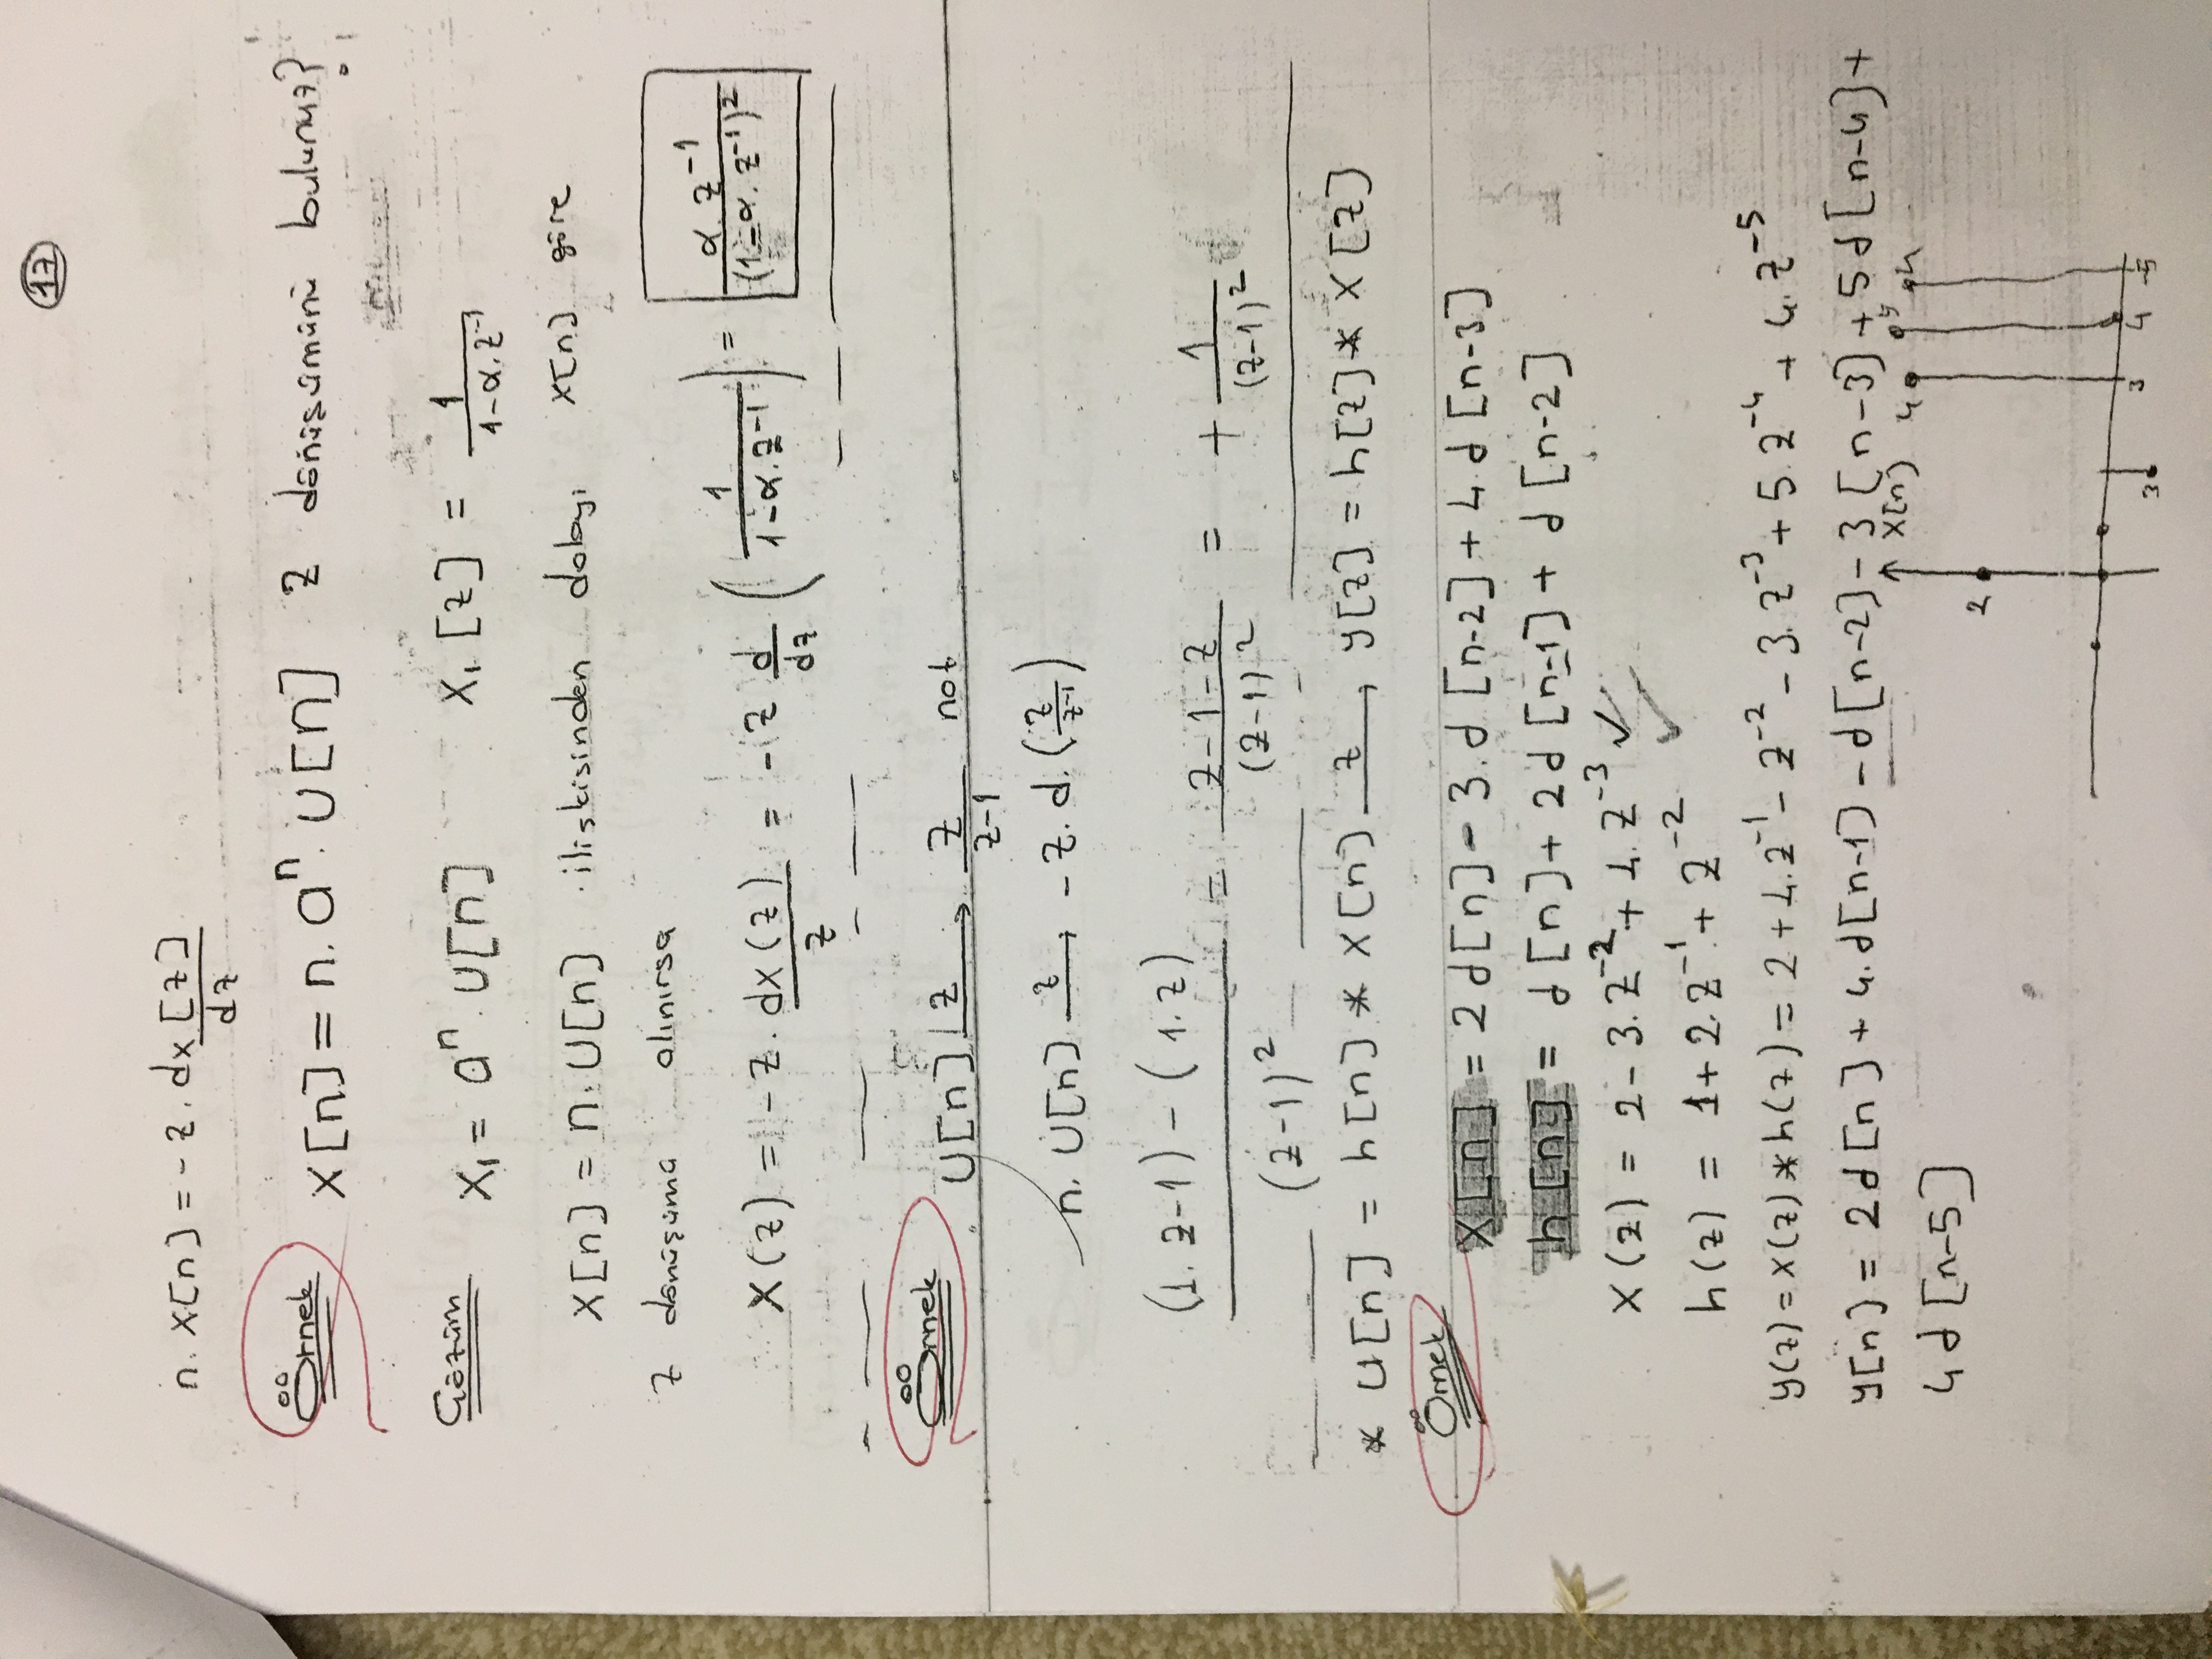 17
n. x[n] = -z. dx[z]/dz
Örnek x[n] = n. a^n. u[n] z dönüşümünü bulunuz?
Çözüm x₁ = a^n. u[n] x₁[z] = 1/(1-α.z^-1)
x[n] = n. u[n] ilişkisinden dolayı x[n] göre
z dönüşümü alınırsa
x(z) = -z. dx(z)/z = -z d/dz (1/(1-α.z^-1)) = α.z^-1/(1-α.z^-1)^2
Örnek u[n] z→ z/(z-1) not
n. u[n] z→ -z. d. (z/(z-1))
((1. z-1) - (1.z))/(z-1)^2 = (z-1-z)/(z-1)^2 = + 1/(z-1)^2
* u[n] = h[n] * x[n] z→ y[z] = h[z] * x[z]
Örnek x[n] = 2d[n] - 3.d[n-2] + 4.d[n-3]
h[n] = d[n] + 2d[n-1] + d[n-2]
x(z) = 2 - 3.z^-2 + 4.z^-3 ✓
h(z) = 1 + 2.z^-1 + z^-2 ✓
y(z) = x(z) * h(z) = 2 + 4.z^-1 - z^-2 - 3.z^-3 + 5.z^-4 + 4.z^-5
y[n] = 2d[n] + 4.d[n-1] - d[n-2] - 3[n-3] + 5d[n-4] +
4d[n-5]
x[n] 4 4
2
3 3 4 5